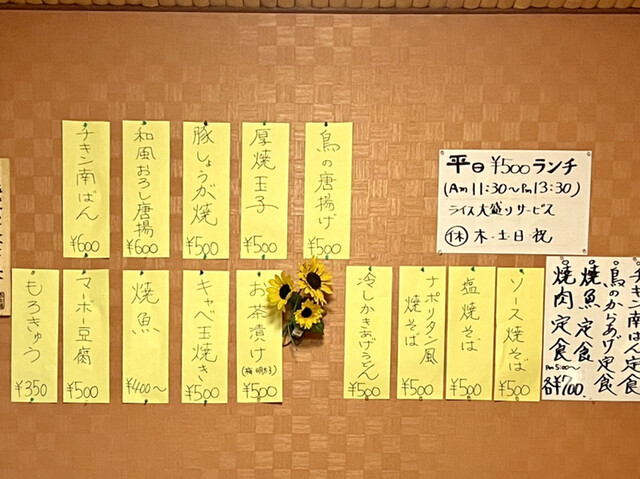 鳥の唐揚げ
¥500
厚焼玉子
¥500
豚しょうが焼
¥500
和風おろし唐揚
¥600
チキン南ばん
¥600
平日 ¥500 ランチ
(Am 11:30〜Pm 13:30)
ライス大盛りサービス
休 木・土日祝
ソース焼そば
¥500
塩焼そば
¥500
ナポリタン風
焼そば
¥500
冷しかきあげうどん
¥500
お茶漬け
(梅 明太子)
¥500
キャベ玉焼き
¥500
焼魚
¥400〜
マーボ豆腐
¥500
もろきゅう
¥350
チキン南ばん定食
鳥のからあげ定食
焼魚定食
焼肉定食
Pm 5:00〜
各¥700